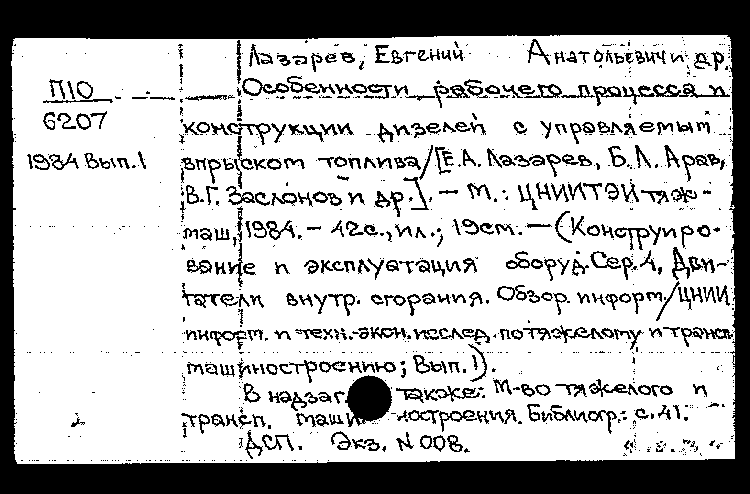 Лазарев, Евгений Анатольевич и др.
П10 Особенности рабочего процесса и
6207
конструкции дизелей с управляемым
1984 Вып.1 впрыском топлива/[Е.А. Лазарев, Б.Л. Арав,
В.Г. Заслонов и др.]. — М.: ЦНИИТЭИтяж-
маш, 1984. — 42с., ил.; 19см. — (Конструиро-
вание и эксплуатация оборуд. Сер. 4, Дви-
гатели внутр. сгорания. Обзор. информ./ЦНИИ
информ. и техн.-экон. исслед. по тяжелому и трансп.
машиностроению; Вып. 1).
В надзаг. также: М-во тяжелого и
трансп. маши ностроения. Библиогр.: с. 41.
ДСП. Экз. N 008.